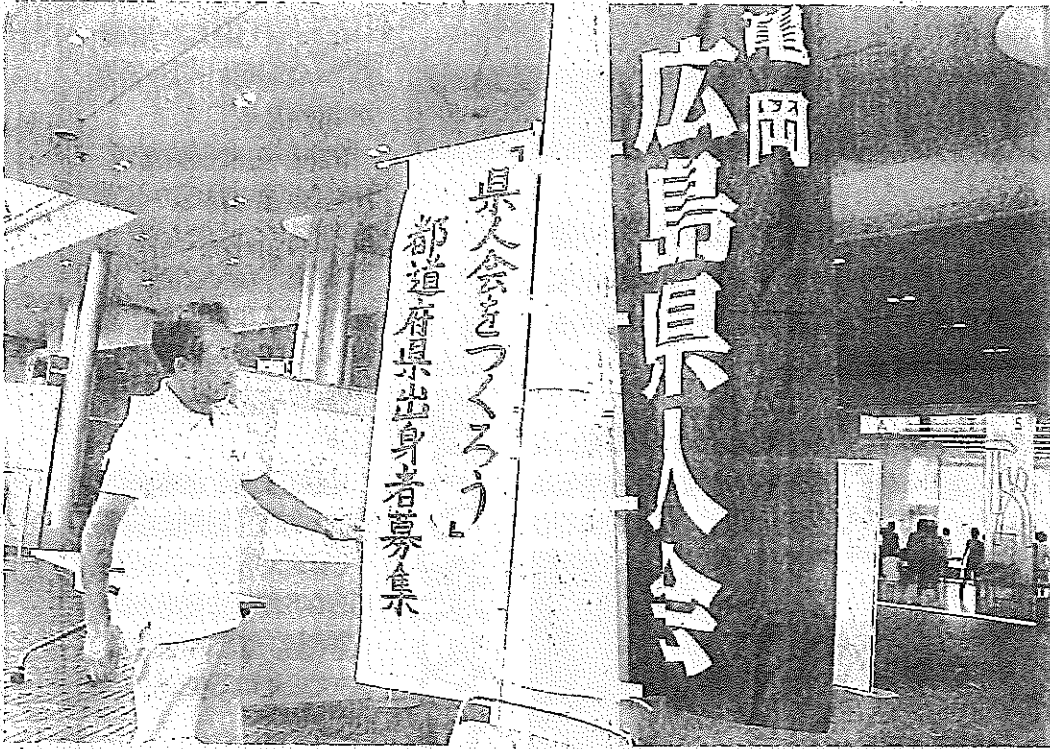 亀岡
広島県人会
「県人会をつくろう」
都道府県出身者募集